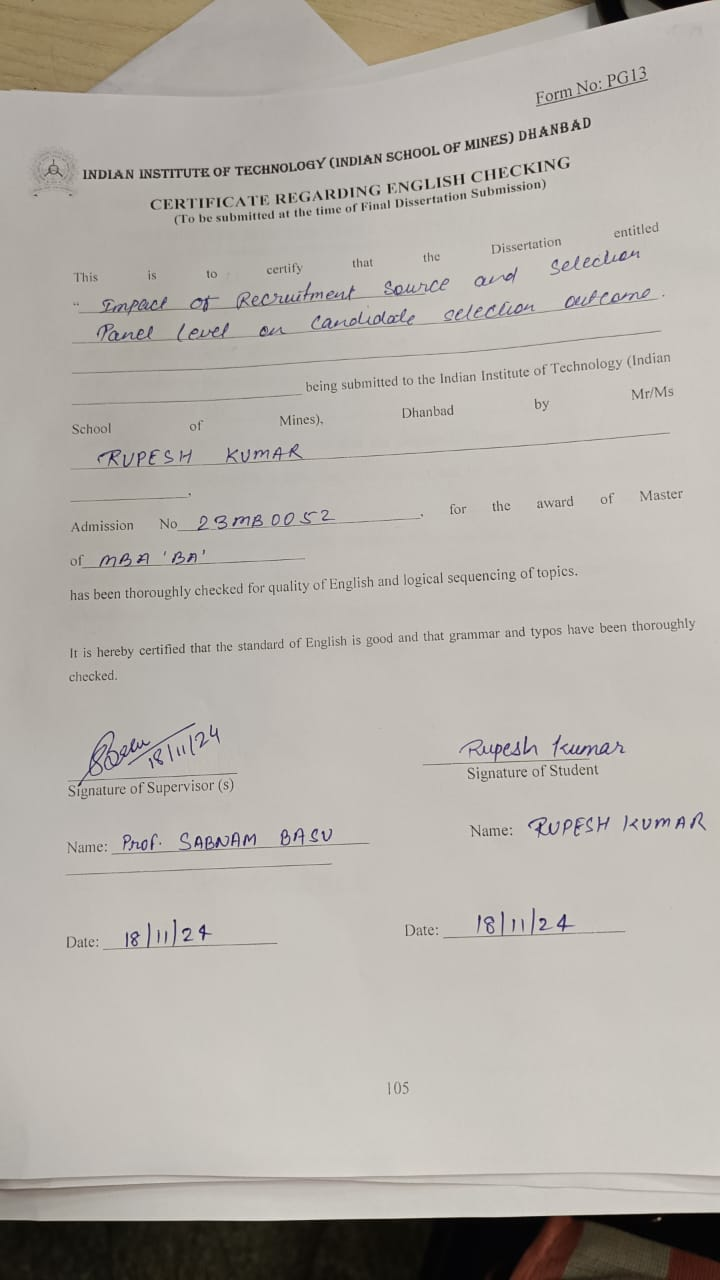 Form No: PG13
INDIAN INSTITUTE OF TECHNOLOGY (INDIAN SCHOOL OF MINES) DHANBAD
CERTIFICATE REGARDING ENGLISH CHECKING
(To be submitted at the time of Final Dissertation Submission)
This is to certify that the Dissertation entitled
" Impact of Recruitment Source and Selection
Panel Level on Candidate selection outcome.
being submitted to the Indian Institute of Technology (Indian
School of Mines), Dhanbad by Mr/Ms
RUPESH KUMAR
.
Admission No 23MB0052, for the award of Master
of MBA 'BA'
has been thoroughly checked for quality of English and logical sequencing of topics.
It is hereby certified that the standard of English is good and that grammar and typos have been thoroughly
checked.
18/11/24 Rupesh Kumar
Signature of Supervisor (s) Signature of Student
Name: Prof. SABNAM BASU Name: RUPESH KUMAR
Date: 18/11/24 Date: 18/11/24
105